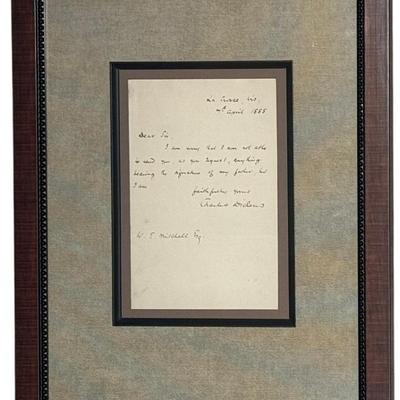 La Crosse, Wis,
7th April 1888
Dear Sir,
I am sorry that I am not able
to send you, as you request, anything
bearing the signature of my father, but
I am
faithfully yours
Charles Dickens
W. S. Mitchell Esq.